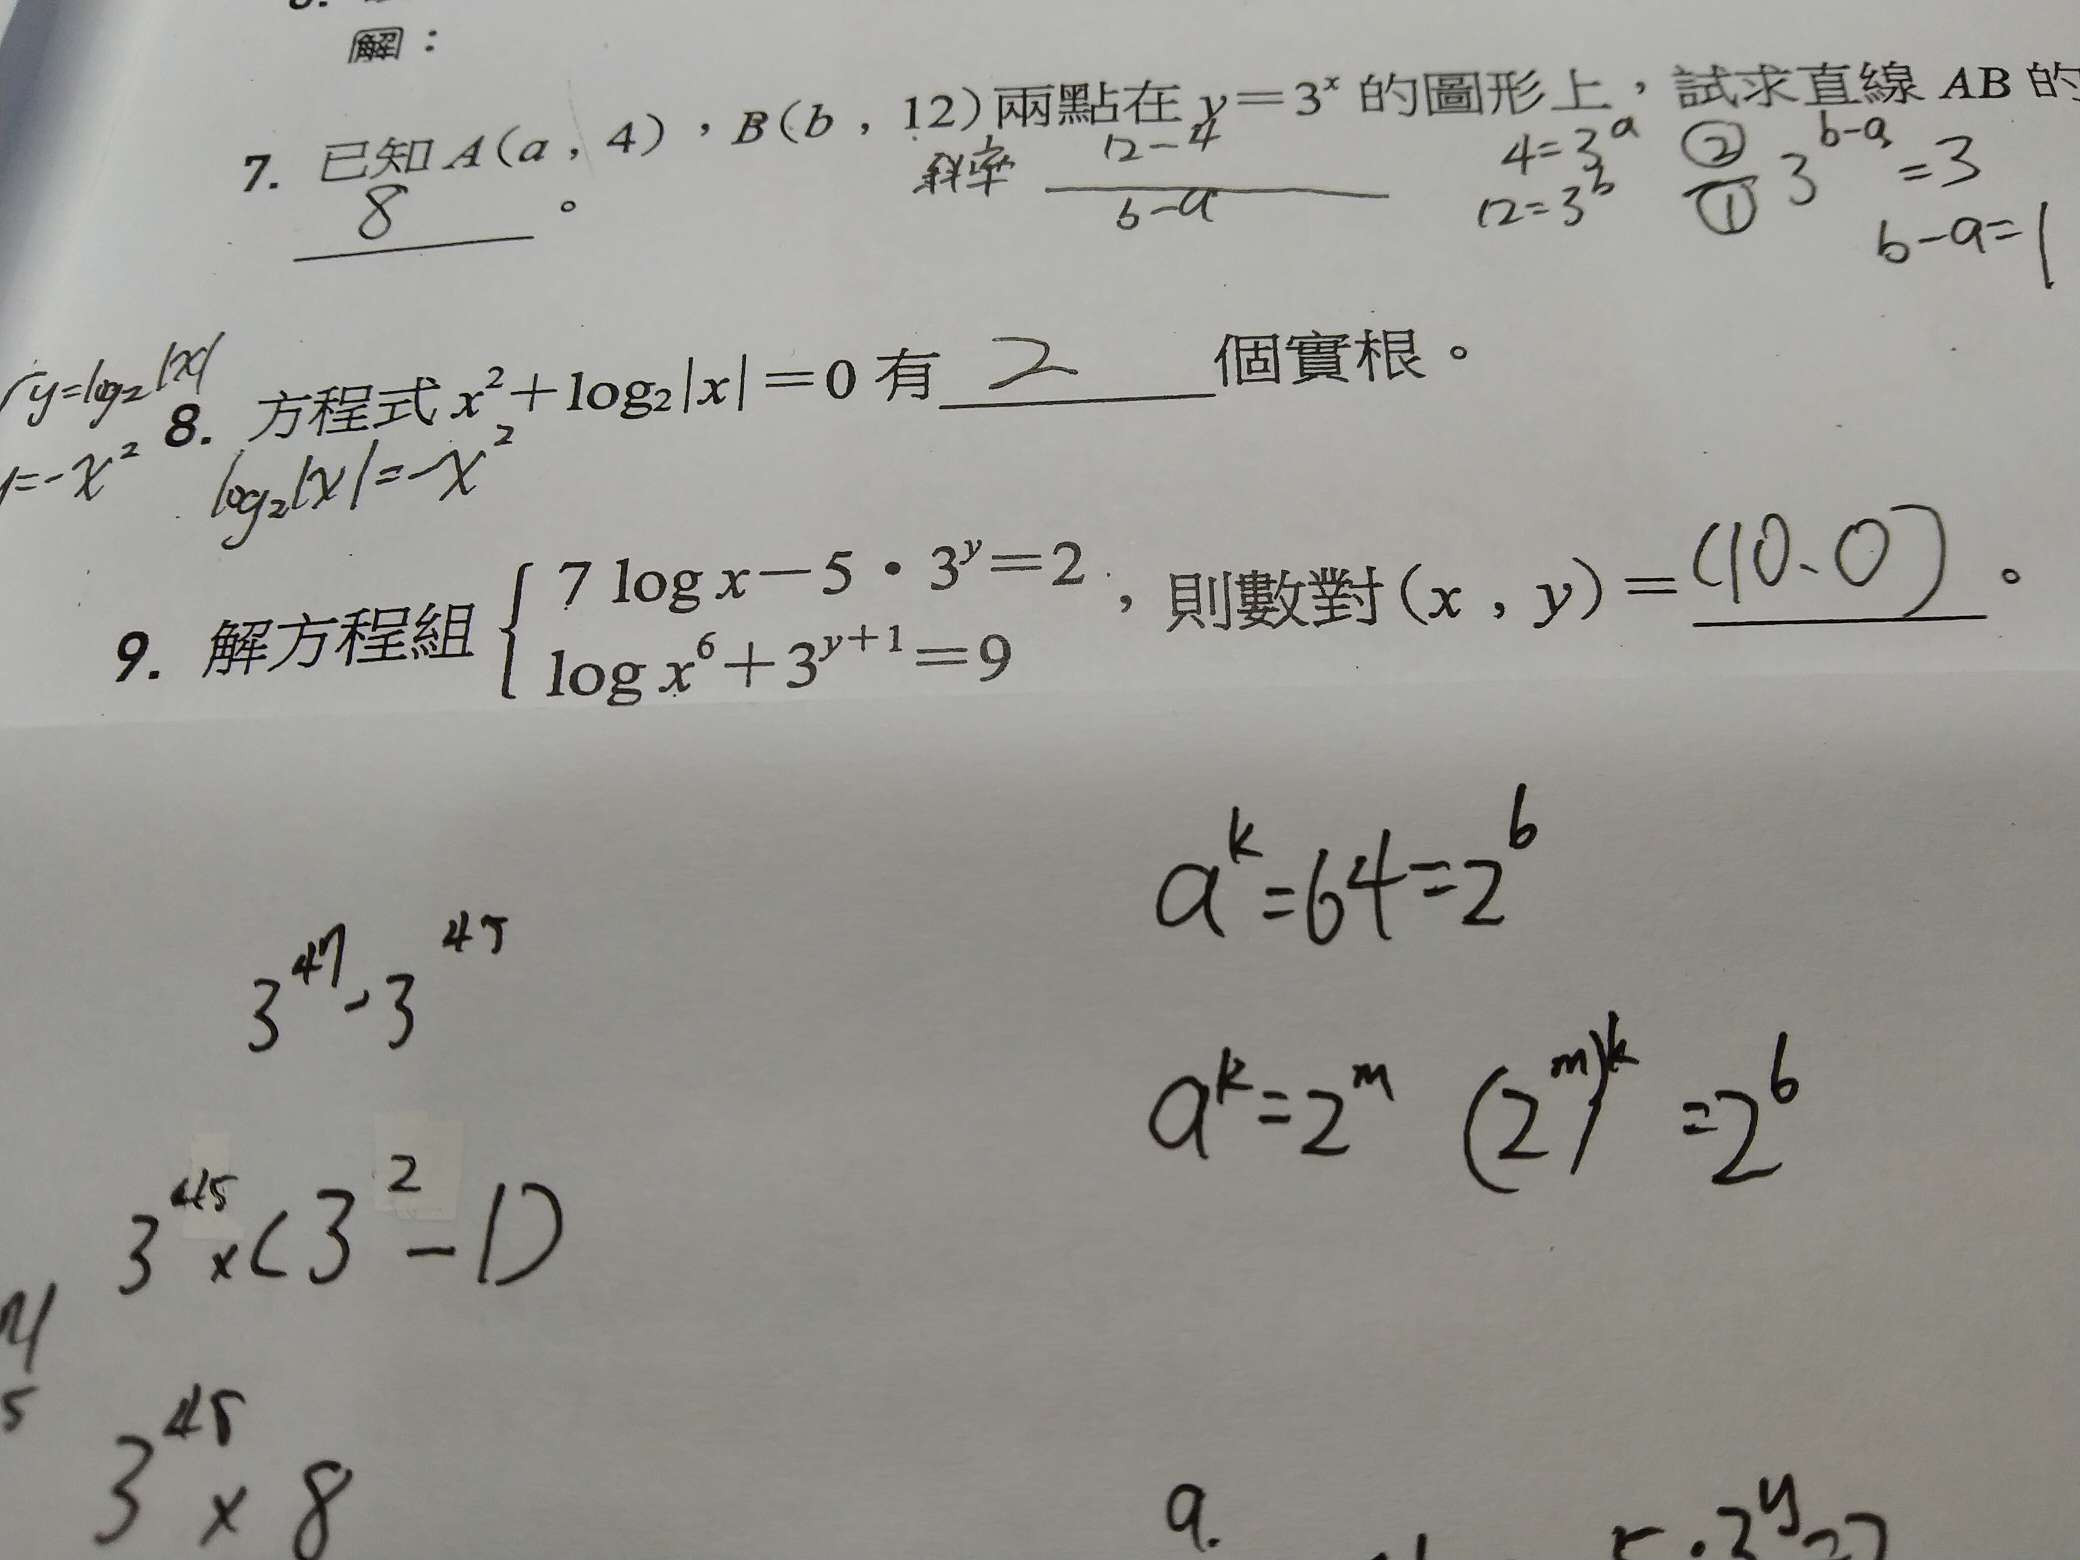 解：
7. 已知 A(a，4)，B(b，12)兩點在 y=3ˣ 的圖形上，試求直線 AB 的
斜率 12-4 4=3ᵃ ② 3ᵇ⁻ᵃ=3
8 。 b-a 12=3ᵇ ① b-a=1
y=log₂|x|
8. 方程式 x²+log₂|x|=0 有 2 個實根。
=-x² log₂|x|=-x²
9. 解方程組 { 7 log x-5·3ʸ=2
log x⁶+3ʸ⁺¹=9 ，則數對(x，y)=(10、0)。
aᵏ=64=2⁶
3⁴⁷-3⁴⁵
aᵏ=2ᵐ (2ᵐ)ᵏ=2⁶
3⁴⁵×(3²-1)
5
3⁴⁵×8
9.